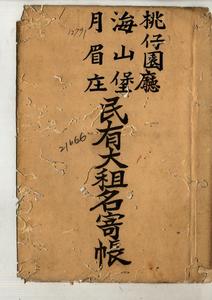 桃仔園廳
海山堡
月眉庄
民有大租名寄帳
21666